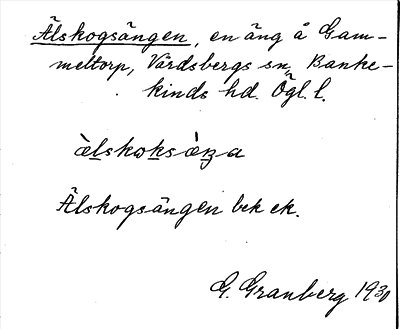 Älskogsängen, en äng å Gam-
meltorp, Vårdsbergs sn, Banke-
kinds hd. Ögl. l.
älskoksäŋa
Älskogsängen bek ek.
G. Granberg 1930